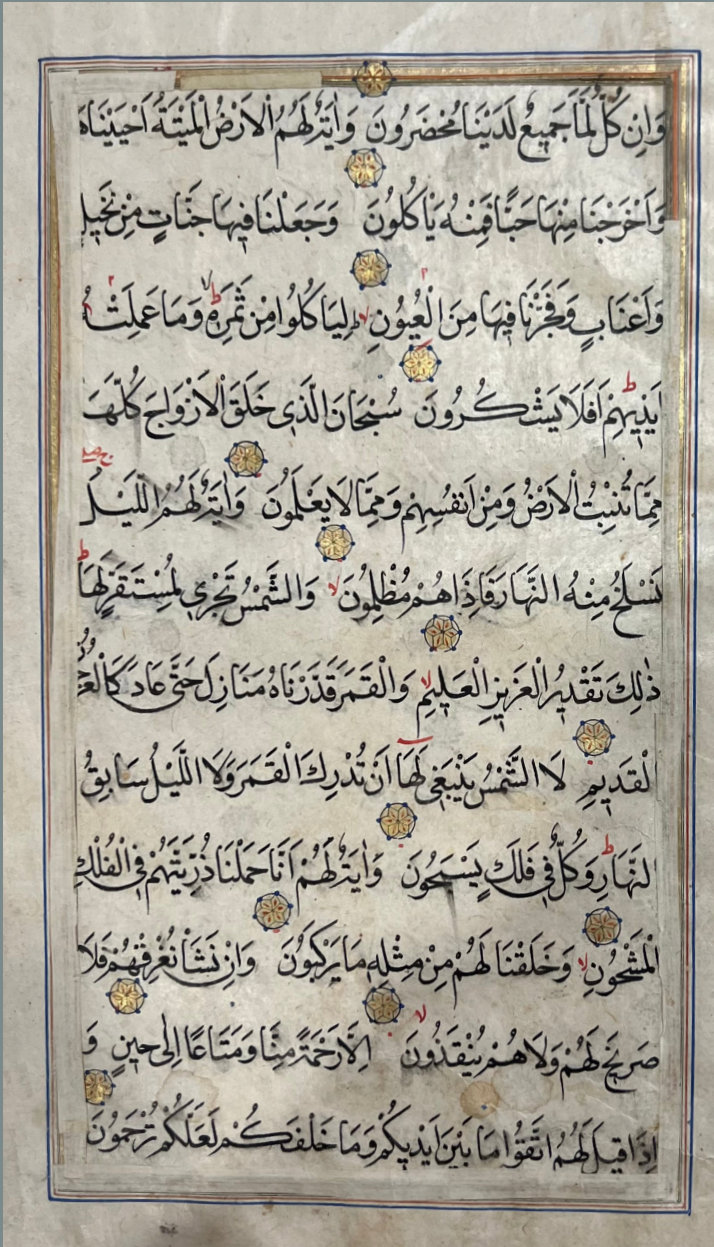 وَاِنْ كُلٌّ لَمَّا جَمِيعٌ لَدَيْنَا مُحْضَرُونَ وَاٰيَةٌ لَهُمُ الْاَرْضُ الْمَيْتَةُ اَحْيَيْنَاهَا
وَاَخْرَجْنَا مِنْهَا حَبًّا فَمِنْهُ يَاْكُلُونَ وَجَعَلْنَا فِيهَا جَنَّاتٍ مِنْ نَخِيلٍ
وَاَعْنَابٍ وَفَجَّرْنَا فِيهَا مِنَ الْعُيُونِ لا لِيَاكُلُوا مِنْ ثَمَرِهٖ وَمَا عَمِلَتْهُ
اَيْدِيهِمْ ط اَفَلَا يَشْكُرُونَ سُبْحَانَ الَّذِي خَلَقَ الْاَزْوَاجَ كُلَّهَا
مِمَّا تُنْبِتُ الْاَرْضُ وَمِنْ اَنْفُسِهِمْ وَمِمَّا لَا يَعْلَمُونَ وَاٰيَةٌ لَهُمُ اللَّيْلُ
نَسْلَخُ مِنْهُ النَّهَارَ فَاِذَا هُمْ مُظْلِمُونَ لا وَالشَّمْسُ تَجْرِي لِمُسْتَقَرٍّ لَهَا ط
ذٰلِكَ تَقْدِيرُ الْعَزِيزِ الْعَلِيمِ لا وَالْقَمَرَ قَدَّرْنَاهُ مَنَازِلَ حَتَّى عَادَ كَالْعُرْجُونِ
الْقَدِيمِ لَا الشَّمْسُ يَنْبَغِي لَهَا اَنْ تُدْرِكَ الْقَمَرَ وَلَا اللَّيْلُ سَابِقُ
النَّهَارِ ط وَكُلٌّ فِي فَلَكٍ يَسْبَحُونَ وَاٰيَةٌ لَهُمْ اَنَّا حَمَلْنَا ذُرِّيَّتَهُمْ فِي الْفُلْكِ
الْمَشْحُونِ لا وَخَلَقْنَا لَهُمْ مِنْ مِثْلِهِ مَا يَرْكَبُونَ وَاِنْ نَشَأْ نُغْرِقْهُمْ فَلَا
صَرِيخَ لَهُمْ وَلَا هُمْ يُنْقَذُونَ لا اِلَّا رَحْمَةً مِنَّا وَمَتَاعًا اِلَى حِينٍ وَ
اِذَا قِيلَ لَهُمُ اتَّقُوا مَا بَيْنَ اَيْدِيكُمْ وَمَا خَلْفَكُمْ لَعَلَّكُمْ تُرْحَمُونَ